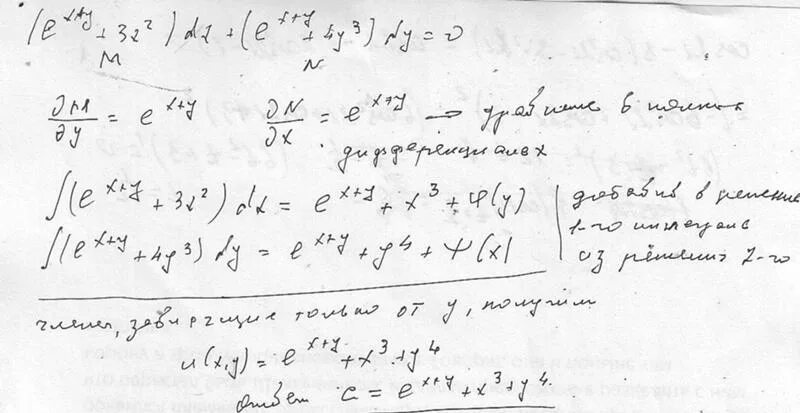 (e^{x+y} + 3x²) dx + (e^{x+y} + 4y³) dy = 0
M N
∂M/∂y = e^{x+y} ∂N/∂x = e^{x+y} → уравнение в полных
дифференциалах
∫(e^{x+y} + 3x²) dx = e^{x+y} + x³ + φ(y)
∫(e^{x+y} + 4y³) dy = e^{x+y} + y⁴ + ψ(x)
добавив в решение
1-го интеграла
из решения 2-го
члены, зависящие только от y, получим
u(x,y) = e^{x+y} + x³ + y⁴
ответ C = e^{x+y} + x³ + y⁴.